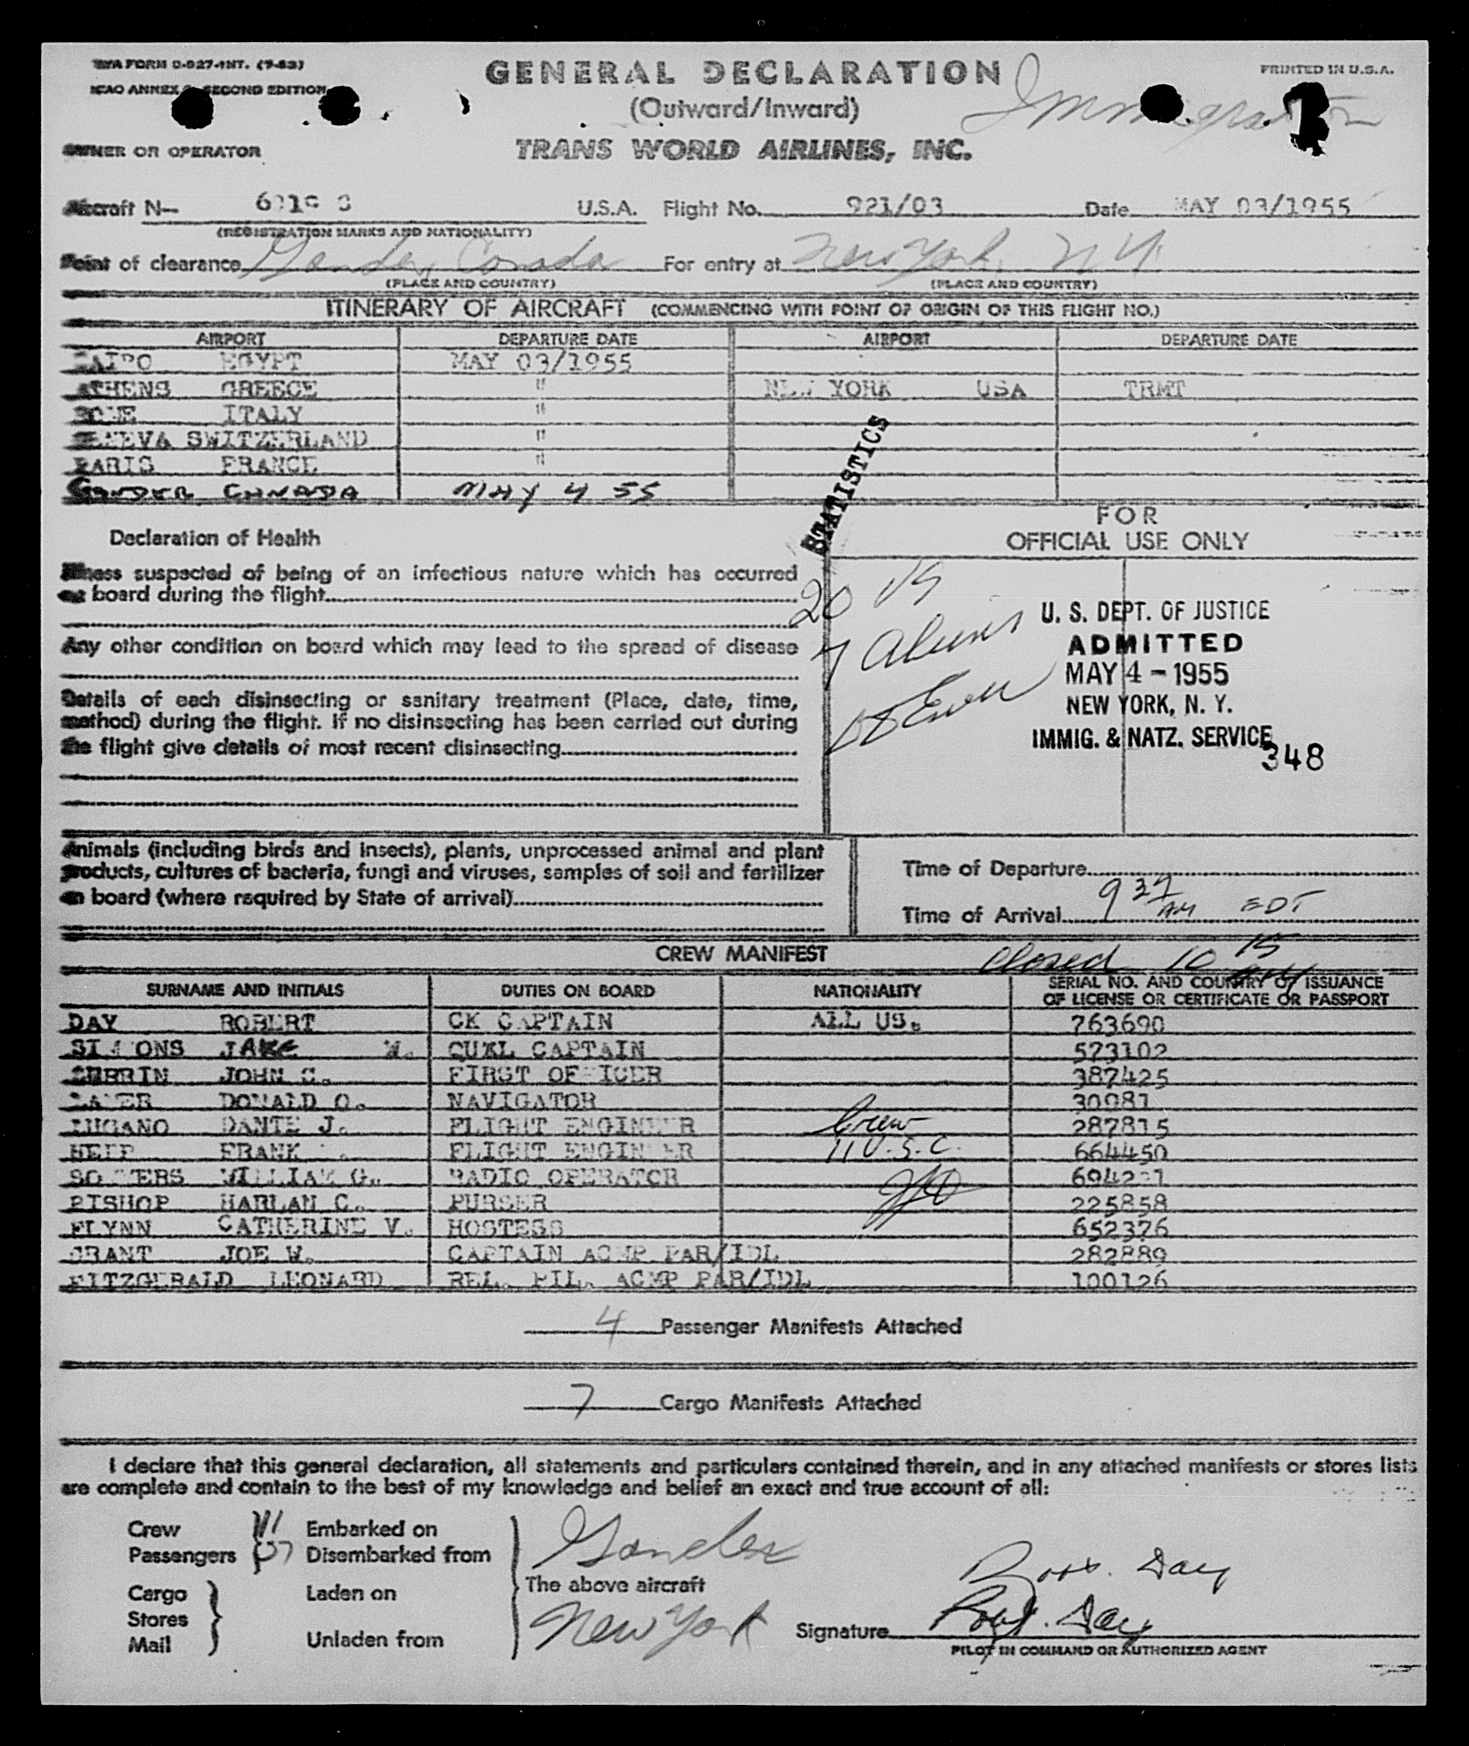 TWA FORM O-927-INT. (9-53)
GENERAL DECLARATION
PRINTED IN U.S.A.
ICAO ANNEX 9 SECOND EDITION
(Outward/Inward)
Immigration
OWNER OR OPERATOR
TRANS WORLD AIRLINES, INC.
Aircraft N— U.S.A. Flight No. 921/03 Date MAY 03/1955
(REGISTRATION MARKS AND NATIONALITY)
Point of clearance Gander, Canada For entry at New York, NY
(PLACE AND COUNTRY) (PLACE AND COUNTRY)
ITINERARY OF AIRCRAFT (COMMENCING WITH POINT OF ORIGIN OF THIS FLIGHT NO.)
AIRPORT DEPARTURE DATE AIRPORT DEPARTURE DATE
CAIRO EGYPT MAY 03/1955
ATHENS GREECE " NEW YORK USA TRMT
ROME ITALY "
GENEVA SWITZERLAND "
PARIS FRANCE "
GANDER CANADA MAY 4 55
STATISTICS
FOR
OFFICIAL USE ONLY
Declaration of Health
Illness suspected of being of an infectious nature which has occurred
on board during the flight
20 US
7 Aliens
Any other condition on board which may lead to the spread of disease
Details of each disinsecting or sanitary treatment (Place, date, time,
method) during the flight. If no disinsecting has been carried out during
the flight give details of most recent disinsecting
U. S. DEPT. OF JUSTICE
ADMITTED
MAY 4 - 1955
NEW YORK, N. Y.
IMMIG. & NATZ. SERVICE
348
Animals (including birds and insects), plants, unprocessed animal and plant
products, cultures of bacteria, fungi and viruses, samples of soil and fertilizer
on board (where required by State of arrival)
Time of Departure
Time of Arrival 9 37 AM EDT
CREW MANIFEST
Closed 10 15 AM
SURNAME AND INITIALS DUTIES ON BOARD NATIONALITY SERIAL NO. AND COUNTRY OF ISSUANCE
OF LICENSE OR CERTIFICATE OR PASSPORT
DAY ROBERT CK CAPTAIN ALL US. 763690
SIMMONS JAKE W. QUAL CAPTAIN 573102
JOHN C. FIRST OFFICER 387425
DONALD O. NAVIGATOR 30981
LUGANO DANTE J. FLIGHT ENGINEER 287815
HELP FRANK FLIGHT ENGINEER 664450
SOMMERS WILLIAM G. RADIO OPERATOR
BISHOP HARLAN C. PURSER 225858
FLYNN CATHERINE V. HOSTESS 652376
GRANT JOE W. CAPTAIN ACMP PAR/IDL 282889
FITZGERALD LEONARD REL. PIL. ACMP PAR/IDL 100126
Crew
11 U.S.C.
4 Passenger Manifests Attached
7 Cargo Manifests Attached
I declare that this general declaration, all statements and particulars contained therein, and in any attached manifests or stores lists
are complete and contain to the best of my knowledge and belief an exact and true account of all:
Crew 11 Embarked on
Passengers 27 Disembarked from
Gander
Cargo Laden on
Stores
Mail Unladen from
The above aircraft
New York
Robt. Day
Signature Robt. Day
PILOT IN COMMAND OR AUTHORIZED AGENT